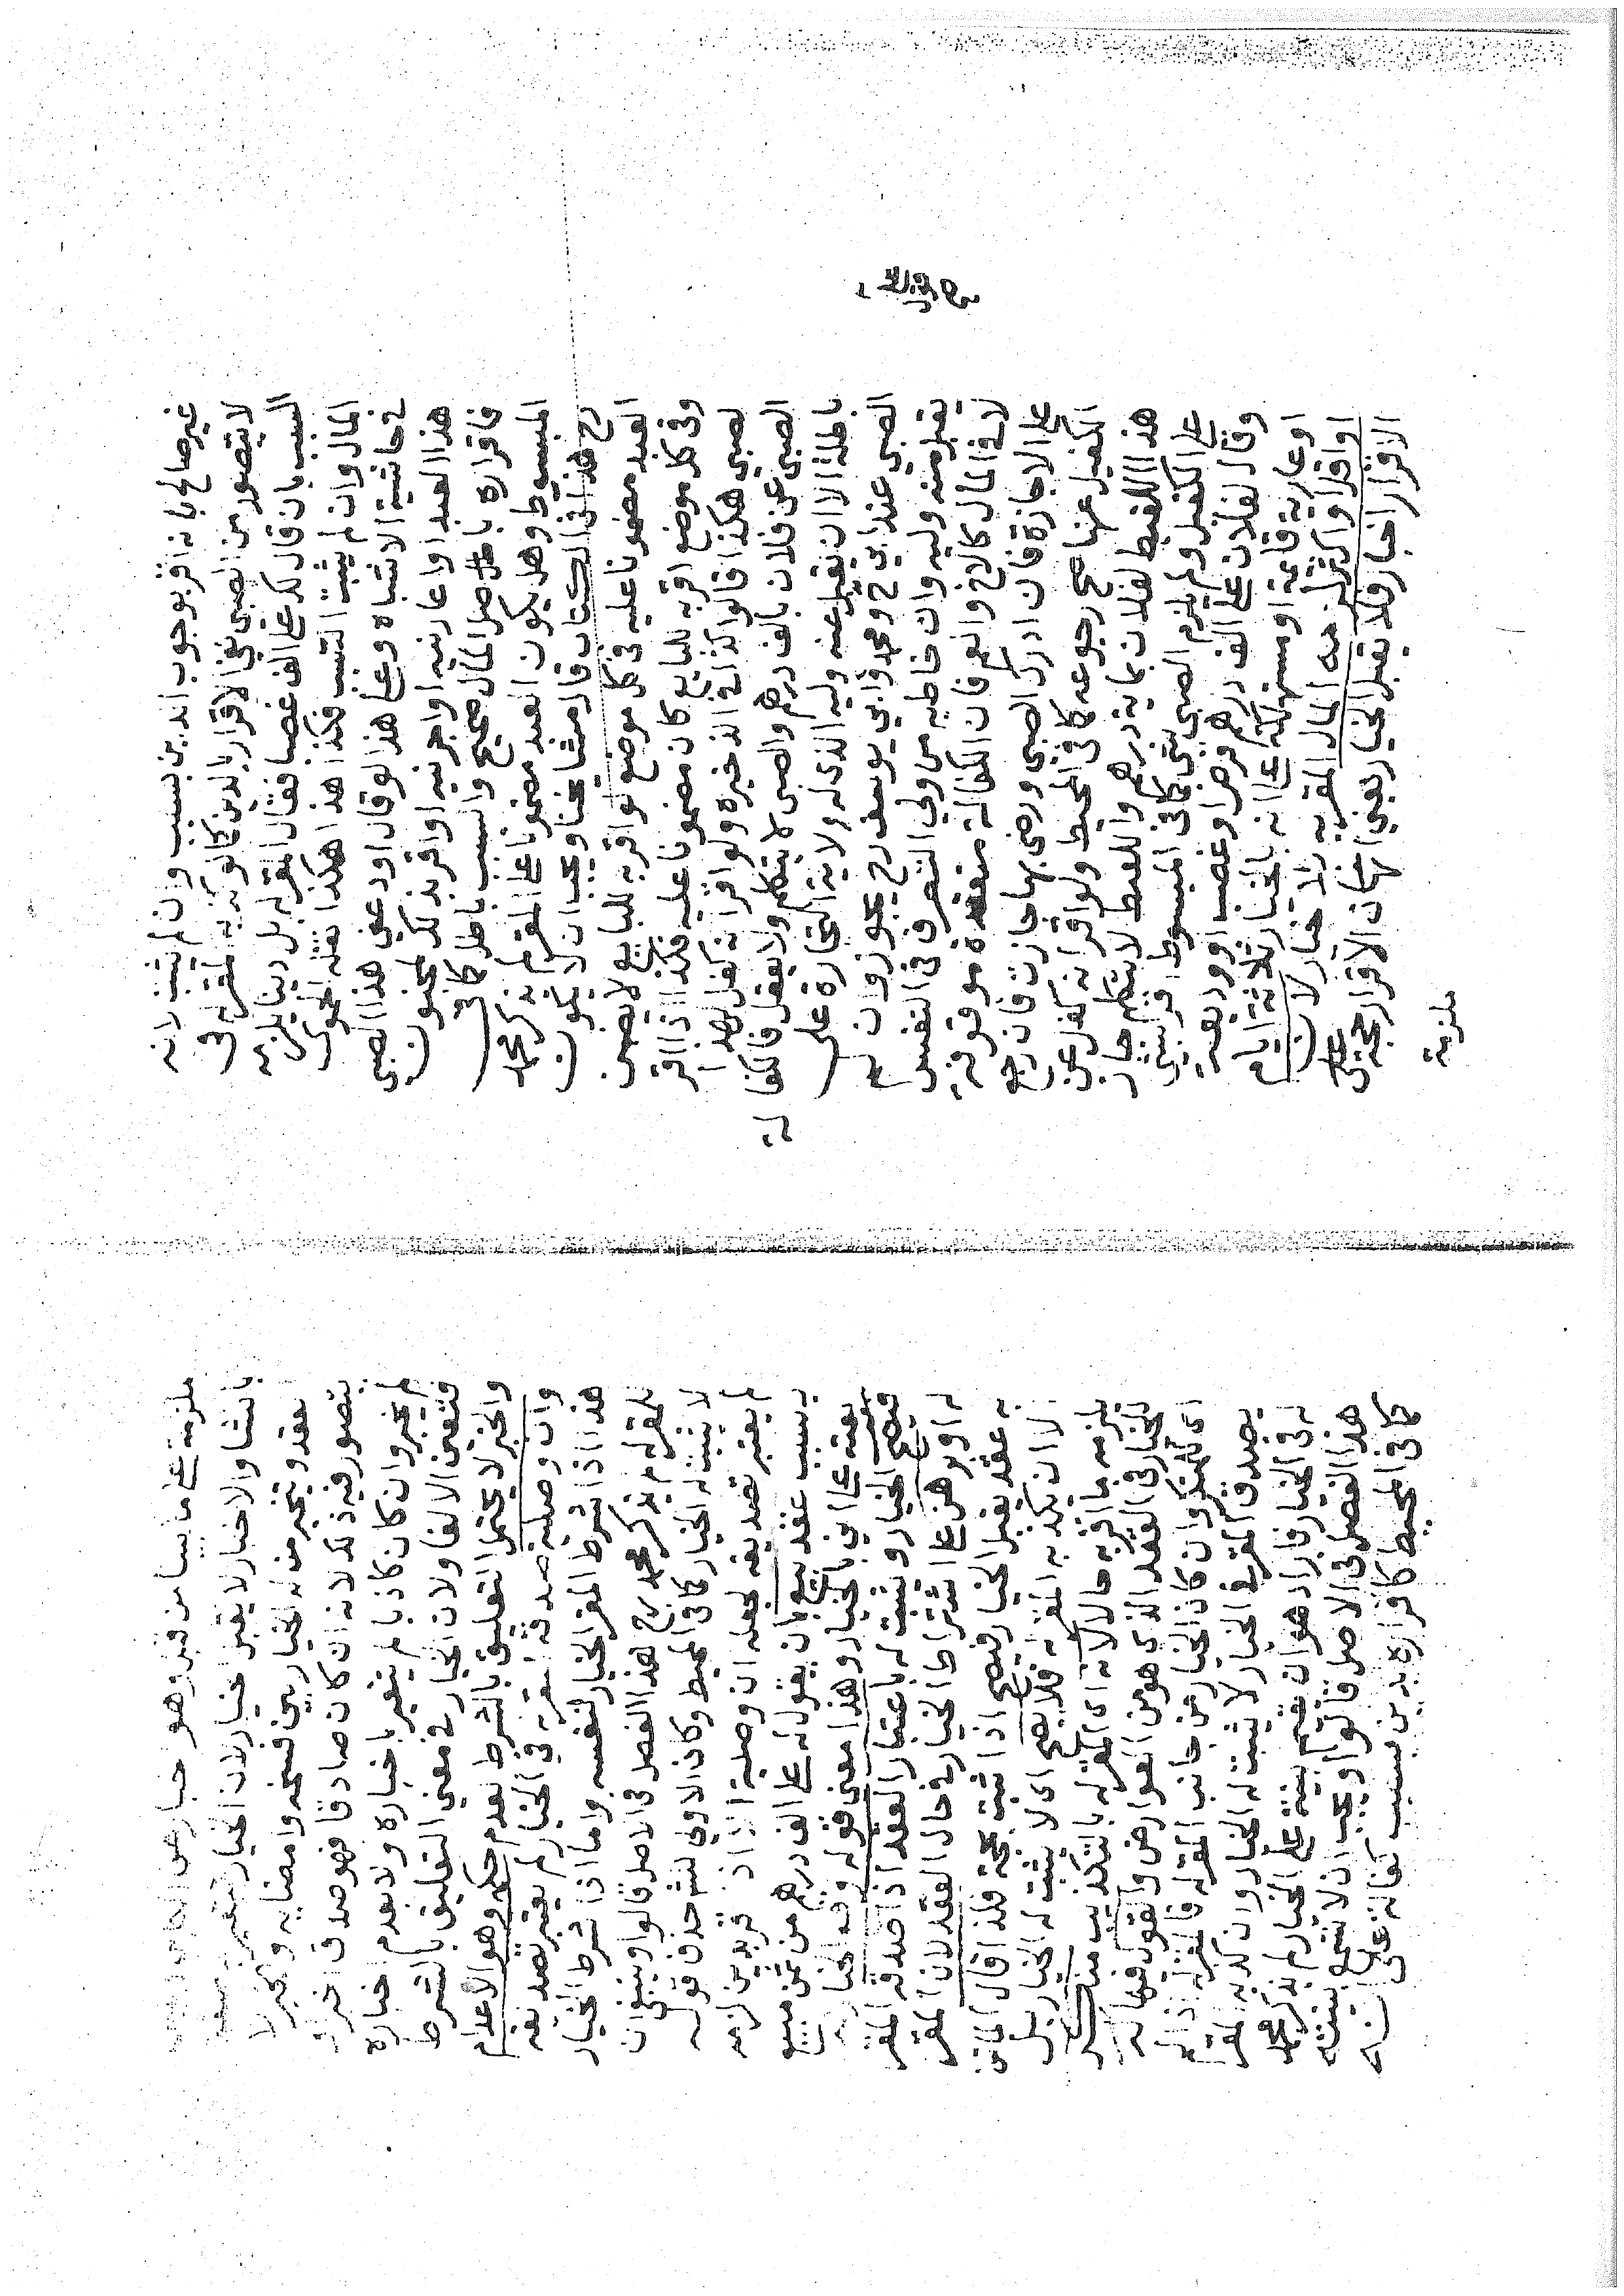 غير صالح بانه اقر بوجوب الدين بسبب وان لم يثبت لانه
لا يتصور من الصبي نفي الاقرار بالدين كما لو كذبه المقر له في
السبب بان قال لك علي الف غصبا فقال المقر له بل دينا يلزمه
المال وان لم يثبت السبب فكذا هذا هكذا نقله الحموي
في حاشية الاشباه وعلى هذا لو قال اودعني هذا الصبي
هذا العبد او اعارنيه او اجرنيه او اقر بذلك لمجنون
فاقراره باصل المال صحيح والسبب باطل كما في
المبسوط وهل يكون العبد مضمونا على المقر لم يذكر محمد
رح هذا في الكتاب قال مشايخنا ويجب ان لا يكون
العبد مضمونا عليه في كل موضع لو اقر به للبايع لا يضمن
وفي كل موضع اقر به للبايع كان مضمونا عليه فكذا اذا اقر
لصبي هكذا قالوا كذا في الذخيرة ولو اقر انه كفل لهذا
الصبي عن فلان بالف درهم والصبي لا يتكلم ولا يعقل فالكفا
لة
باطلة الا ان يقبل عنه وليه الذي له ولاية التجارة على
الصبي عند ابي ح ومحمد وابي يوسف رح يجوز وان لم
يقبل منه وليه وان خاطبه من ولي التصرف في النفس
لا في المال كالاخ والعم فان الكفالة منعقدة موقوفة
على الاجازة فان ادرك الصبي ورضي بها جازت فان رجع
الكفيل عنها صح رجوعه كما في المحيط ولو اقر انه كفل عن
هذا اللقيط لفلان بماية درهم واللقيط لا يتكلم جاز
على الكفيل ولم يلزم الصبي شي كما في المبسوط اقر بشي
وقال لفلان علي الف درهم قرضا او غصب او وديعة
او عارية قايمة او مستهلكة على انه بالخيار ثلاثة ايام
او اقرارا واكثر لزمه المال المقر به بلا خيار لان
الاقرار اخبار فلا يقبل الخيار يعني انما كان الاقرار حجة
ملزمة
ملزمة على ما بينا من قبل وهو
بانشا والاخبار لا يقبل الخيار لان الخيار
عقد ويتخير من له الخيار بين فسخه وامضايه والخبر لا
يتصور فيه ذلك لانه ان كان صادقا فهو صدق اخباره
لم يخبر وان كان كاذبا لم يتغير باختياره ولا بعدم خياره
فتعين الالغا ولان الخيار في معنى التعليق بالشرط
والخبر لا يحتمل التعليق بالشرط لعدم حكمه وهو الاعدام
وان وصلية صدقه المقر له في الخيار لم يعتبر تصديقه
هذا اذا شرط المقر الخيار لنفسه واما اذا شرط الخيار
للمقر له لم يذكر محمد رح هذا الفصل في الاصل قالوا وينبغي ان
لا يثبت له الخيار كما في المحيط وكان الاولى للش حذف قوله
لم يعتبر تصديقه لجعله ان وصلية الا اذا اقر بدين لزمه
بسبب عقد بيع بان يقول له علي الف درهم من ثمن مبيع
بعته على اني بالخيار وهذا معنى قوله وقع بالخيار
فيصح الخيار ويثبت له باعتبار العقد اذا صدقه المقر
له او برهن على اشتراط الخيار في حال العقد لان المقر
به عقد يقبل الخيار فيصح اذا ثبت بحجة فلذا قال الماتن
الا ان يكذبه المقر له فلا يصح اي لا يثبت له الخيار بل
يلزمه ما اقر به حالا لانه اي المقر له بالتكذيب منكر
للخيار في العقد الذي هو من العوارض والقول فيها له
اي للمنكر وان كان الخيار من جانب المقر له فالمقر له اذا لم
يصدق المقر في الخيار لا يثبت له الخيار وان كذبه المقر
له في الخيار فاراد هو ان يقيم بينة على الخيار لم يذكر محمد
هذا الفصل في الاصل قالوا ويجب ان لا تسمع بينته
كما في المحيط كاقراره بدين بسبب كفالة على انه